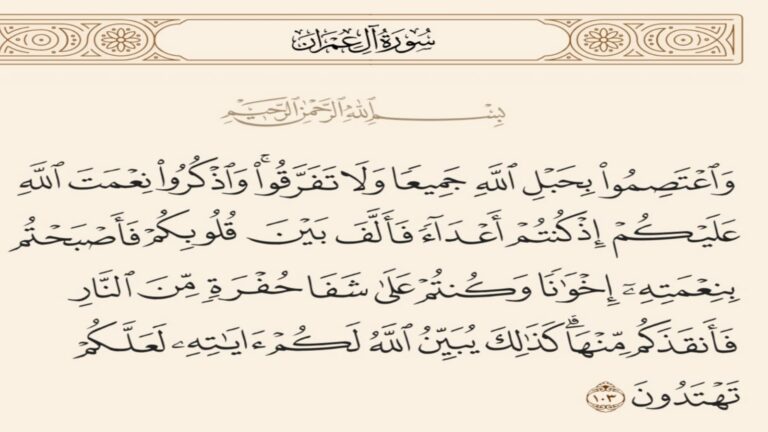 سُورَةُ آلِ عِمْرَان
بِسْمِ ٱللَّهِ ٱلرَّحْمَٰنِ ٱلرَّحِيمِ
وَٱعْتَصِمُوا۟ بِحَبْلِ ٱللَّهِ جَمِيعًا وَلَا تَفَرَّقُوا۟ۚ وَٱذْكُرُوا۟ نِعْمَتَ ٱللَّهِ
عَلَيْكُمْ إِذْ كُنتُمْ أَعْدَآءً فَأَلَّفَ بَيْنَ قُلُوبِكُمْ فَأَصْبَحْتُم
بِنِعْمَتِهِۦٓ إِخْوَٰنًا وَكُنتُمْ عَلَىٰ شَفَا حُفْرَةٍ مِّنَ ٱلنَّارِ
فَأَنقَذَكُم مِّنْهَاۗ كَذَٰلِكَ يُبَيِّنُ ٱللَّهُ لَكُمْ ءَايَٰتِهِۦ لَعَلَّكُمْ
تَهْتَدُونَ ١٠٣